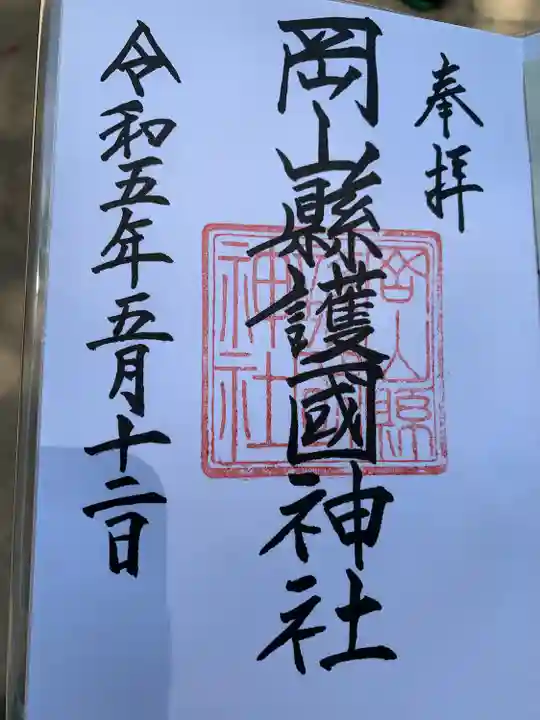 奉拝
岡山縣護國神社
岡山縣
護國
神社
令和五年五月十二日